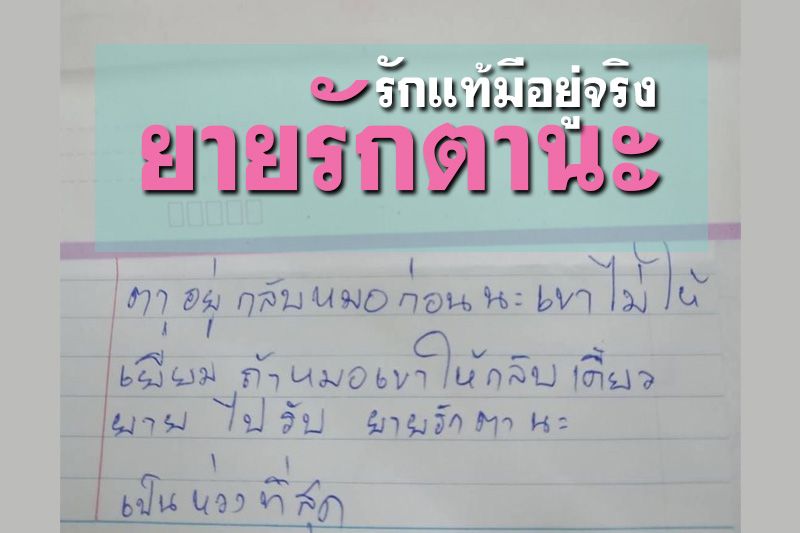 รักแท้มีอยู่จริง
ยายรักตานะ
ตาอยู่กลับหมอก่อนนะเขาไม่ให้
เยียมถ้าหมอเขาให้กลับเดี๋ยว
ยายไปรับ ยายรักตานะ
เป็นห่วงที่สุด